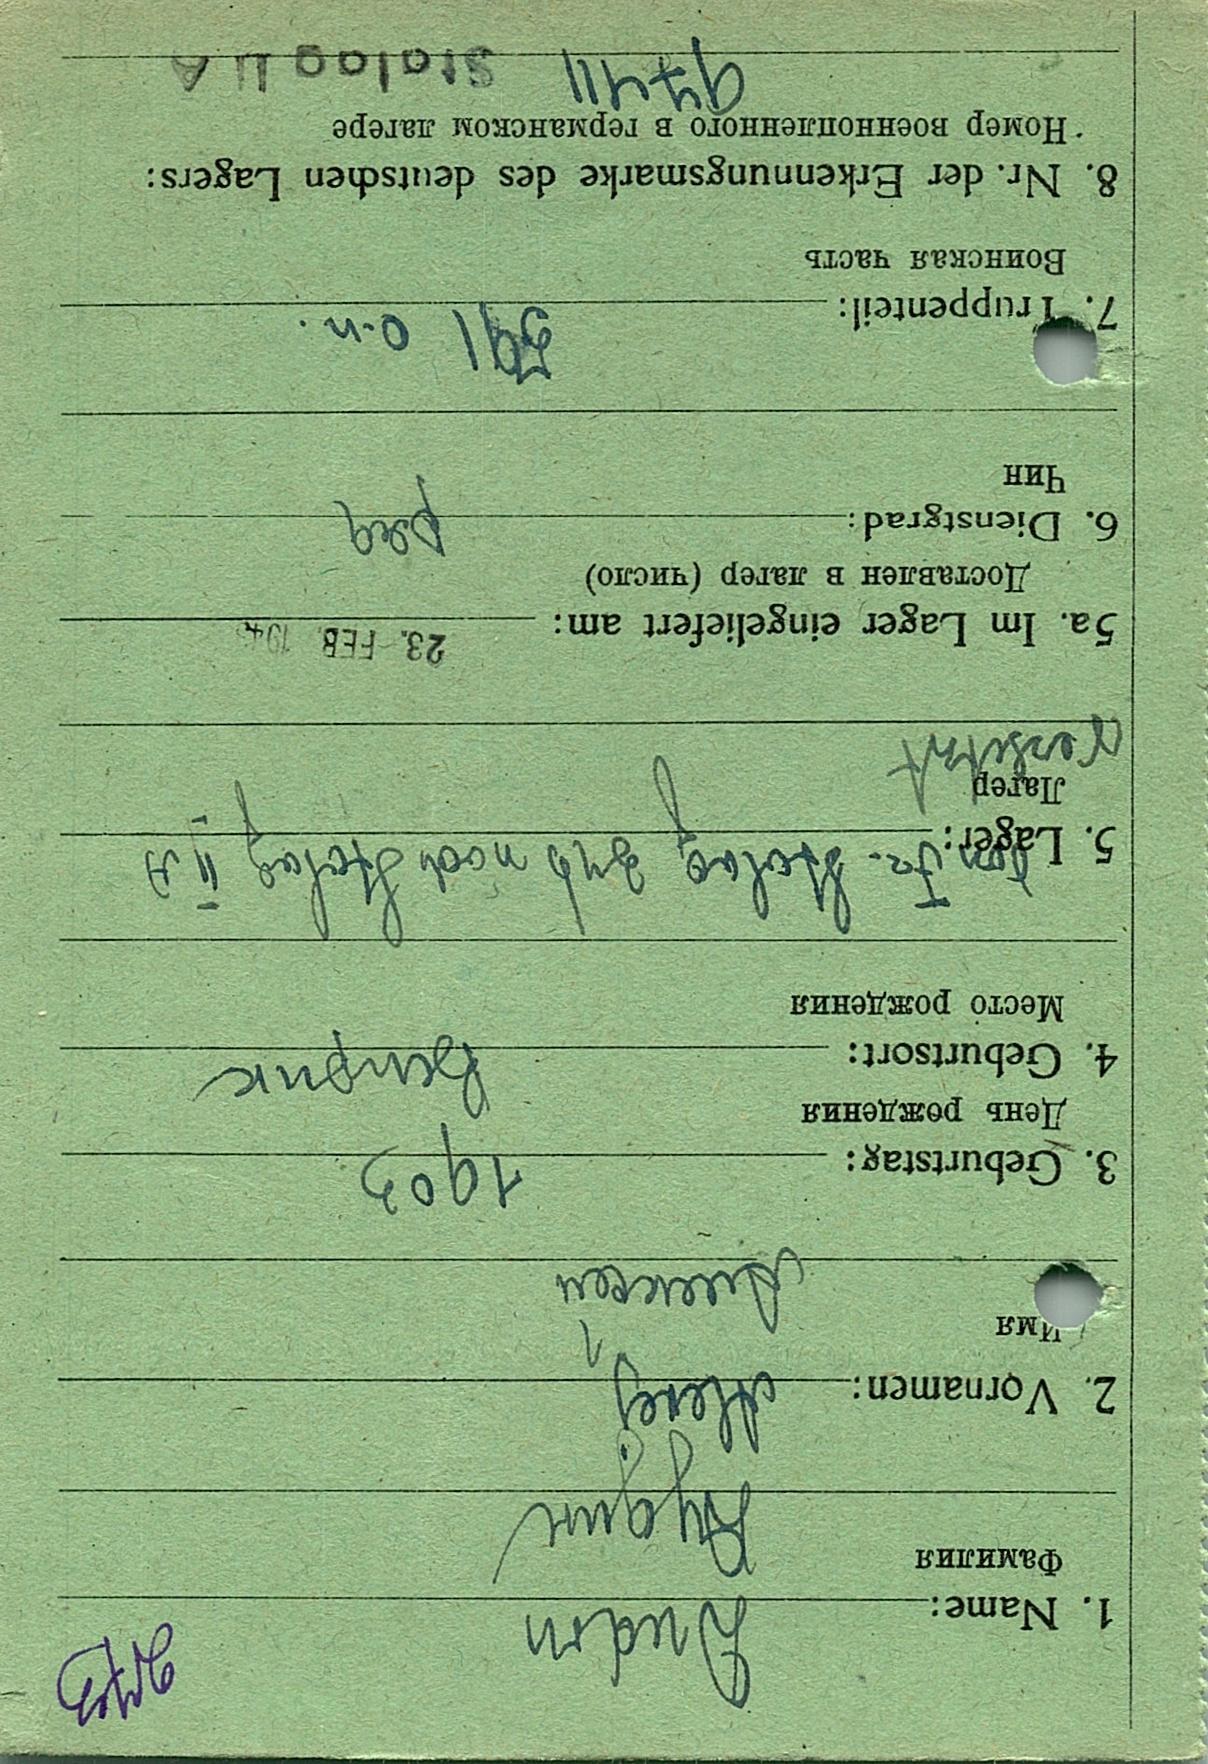 1. Name: Dudin
Фамилия
Дудин
2. Vornamen: Alexej
Имя
Алексей
3. Geburtstag: 1903
День рождения
4. Geburtsort:
Место рождения
5. Lager: vom Fr. Stalag 346 nach Stalag II A
Лагер
versetzt
5a. Im Lager eingeliefert am: 23. FEB 194
Доставлен в лагер (число)
6. Dienstgrad: ряд
Чин
7. Truppenteil: 591 о.п.
Воинская часть
8. Nr. der Erkennungsmarke des deutschen Lagers:
Номер военнопленного в германском лагере
97411 Stalag II A